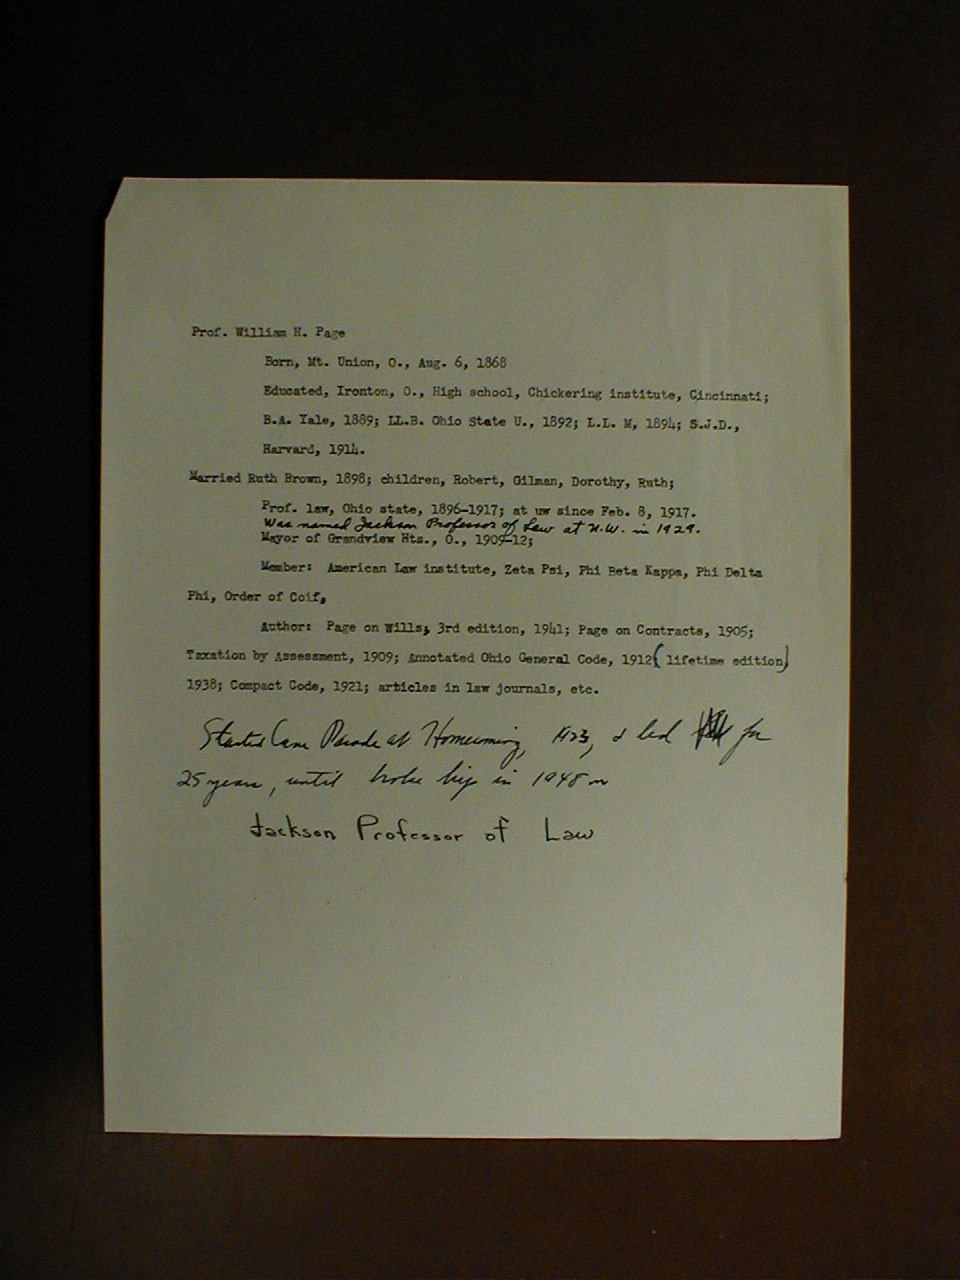 Prof. William H. Page
Born, Mt. Union, O., Aug. 6, 1868
Educated, Ironton, O., High school, Chickering institute, Cincinnati;
B.A. Yale, 1889; LL.B. Ohio State U., 1892; L.L. M, 1894; S.J.D.,
Harvard, 1914.
Married Ruth Brown, 1898; children, Robert, Gilman, Dorothy, Ruth;
Prof. law, Ohio state, 1896-1917; at uw since Feb. 8, 1917.
Was named Jackson Professor of Law at U.W. in 1929.
Mayor of Grandview Hts., O., 1909-12;
Member: American Law institute, Zeta Psi, Phi Beta Kappa, Phi Delta
Phi, Order of Coif,
Author: Page on Wills, 3rd edition, 1941; Page on Contracts, 1905;
Taxation by Assessment, 1909; Annotated Ohio General Code, 1912 (lifetime edition)
1938; Compact Code, 1921; articles in law journals, etc.
Started Cane Parade at Homecoming, 1923, & led for
25 years, until broke hip in 1948
Jackson Professor of Law